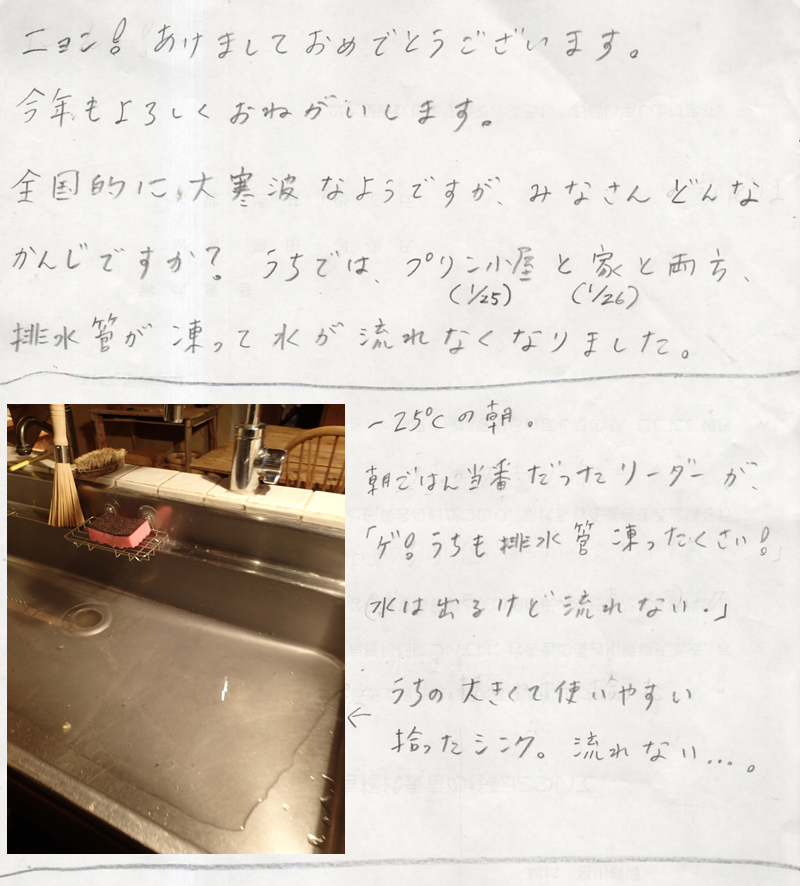 ニョン! あけましておめでとうございます。
今年もよろしくおねがいします。
全国的に、大寒波なようですが、みなさんどんな
かんじですか? うちでは、プリン小屋と家と両方、
(1/25) (1/26)
排水管が凍って水が流れなくなりました。
-25℃の朝。
朝ごはん当番だったリーダーが、
「ゲ! うちも排水管凍ったくさい!
水は出るけど流れない.」
← うちの大きくて使いやすい
拾ったシンク。流れない…。